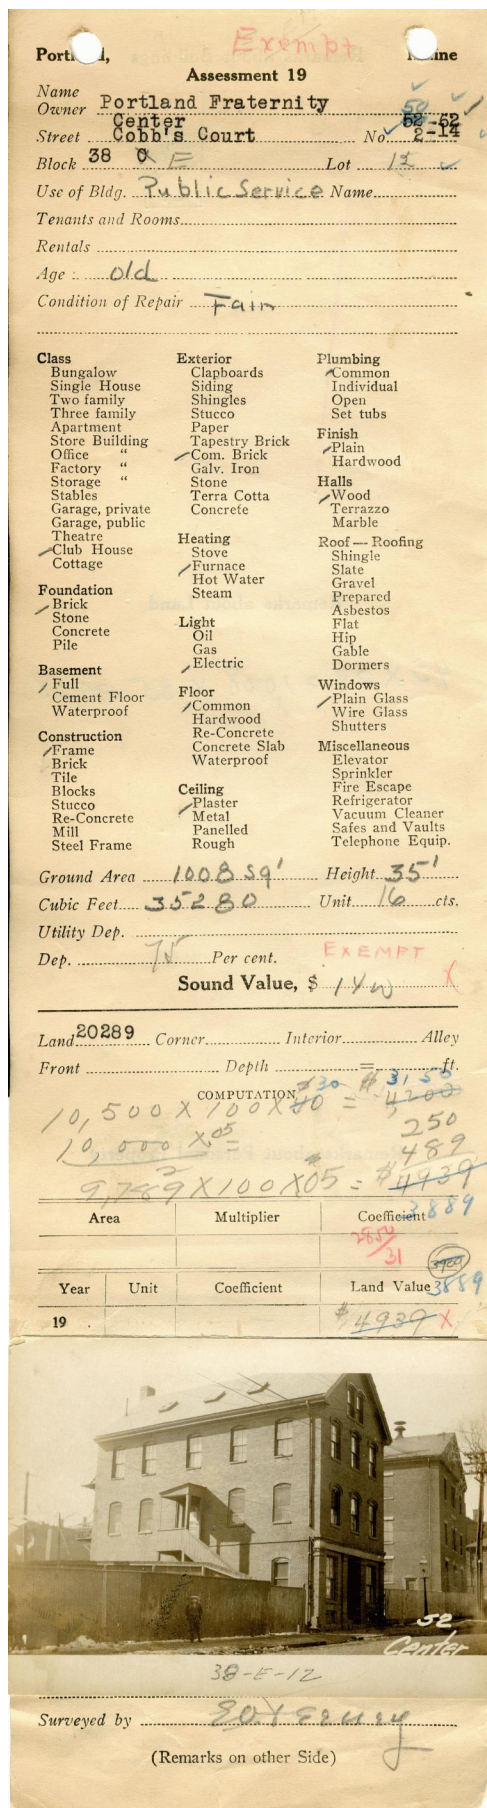 Exempt
Portland, Maine
Assessment 19
Name
Owner Portland Fraternity
Center 50 52-62
Street Cobb's Court No. 2-14
Block 38 C E Lot 12
Use of Bldg. Public Service Name
Tenants and Rooms
Rentals
Age : old
Condition of Repair Fair
Class
Bungalow
Single House
Two family
Three family
Apartment
Store Building
Office "
Factory "
Storage "
Stables
Garage, private
Garage, public
Theatre
Club House
Cottage
Foundation
Brick
Stone
Concrete
Pile
Basement
Full
Cement Floor
Waterproof
Construction
Frame
Brick
Tile
Blocks
Stucco
Re-Concrete
Mill
Steel Frame
Exterior
Clapboards
Siding
Shingles
Stucco
Paper
Tapestry Brick
Com. Brick
Galv. Iron
Stone
Terra Cotta
Concrete
Heating
Stove
Furnace
Hot Water
Steam
Light
Oil
Gas
Electric
Floor
Common
Hardwood
Re-Concrete
Concrete Slab
Waterproof
Ceiling
Plaster
Metal
Panelled
Rough
Plumbing
Common
Individual
Open
Set tubs
Finish
Plain
Hardwood
Halls
Wood
Terrazzo
Marble
Roof — Roofing
Shingle
Slate
Gravel
Prepared
Asbestos
Flat
Hip
Gable
Dormers
Windows
Plain Glass
Wire Glass
Shutters
Miscellaneous
Elevator
Sprinkler
Fire Escape
Refrigerator
Vacuum Cleaner
Safes and Vaults
Telephone Equip.
Ground Area 1008 sq' Height 35'
Cubic Feet 35280 Unit 16 cts.
Utility Dep.
Dep. 75 Per cent. EXEMPT
Sound Value, $ X
Land 20289 Corner Interior Alley
Front Depth = ft.
COMPUTATION 30 $ 3150
10,500 X 100 X 40 = 4200
10,000 X .05 = 250
489
9,789 X 100 X 05 = $ 4939
Area Multiplier Coefficient 3889
2850
31 3900
Year Unit Coefficient Land Value 3889
19 . $ 4939 X
52
Center
38-E-12
Surveyed by
(Remarks on other Side)